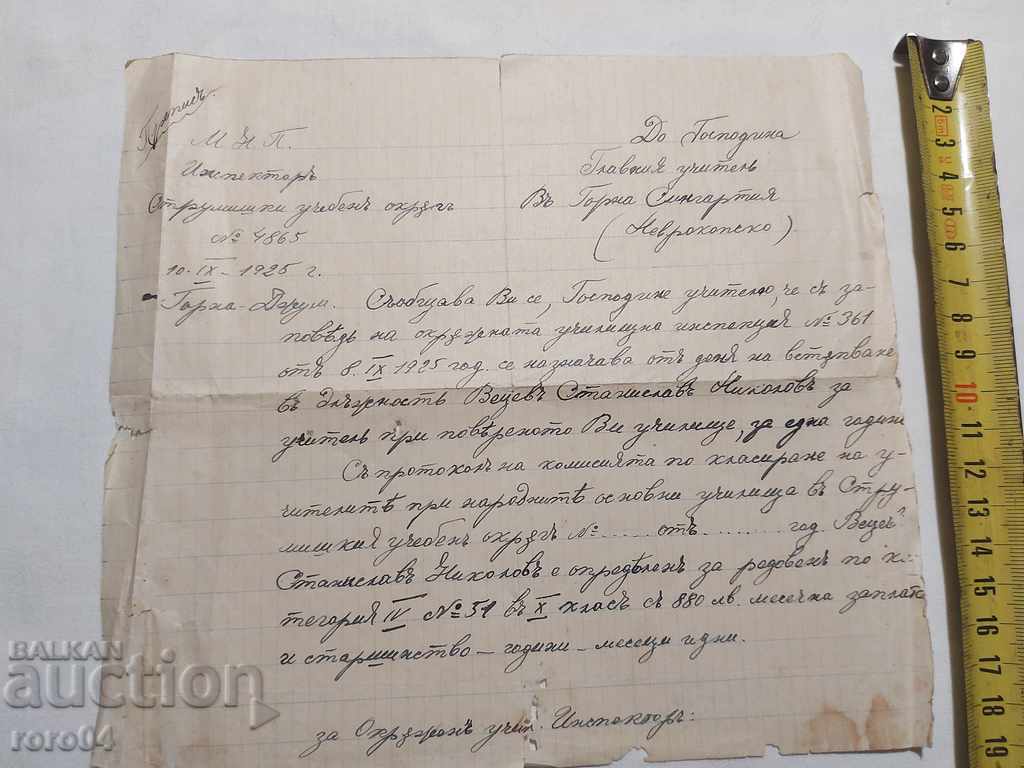 Препис.
М Н П.
Инспекторъ
Струмишки учебенъ окрѫгъ
№ 4865
10. IX - 1925 г.
Горна-Джум.
До Господина
Главния учитель
Въ Горна Сингартия
(Неврокопско)
Съобщава Ви се, Господине учителю, че съ за-
поведь на окрѫжната училищна инспекция № 361
отъ 8. IX 1925 год. се назначава отъ деня на встѫпване
въ длъжность Вецевъ Станиславъ Николовъ за
учитель при повѣреното Ви училище, за една година
Съ протоколъ на комисията по класиране на у-
чителитѣ при народнитѣ основни училища въ Стру-
мишкия учебенъ окрѫгъ № ..... отъ ........ год. Вецевъ
Станиславъ Николовъ е опредѣленъ за редовенъ по ка-
тегория IV № 51 въ X класъ съ 880 лв. месечна заплата
и старшинство - години - месеци и дни.
за Окрѫженъ учил. Инспекторъ:
BALKAN
auction
roro04
2 3 4 5 6 7 8 9 10 11 12 13 14 15 16 17 18 19